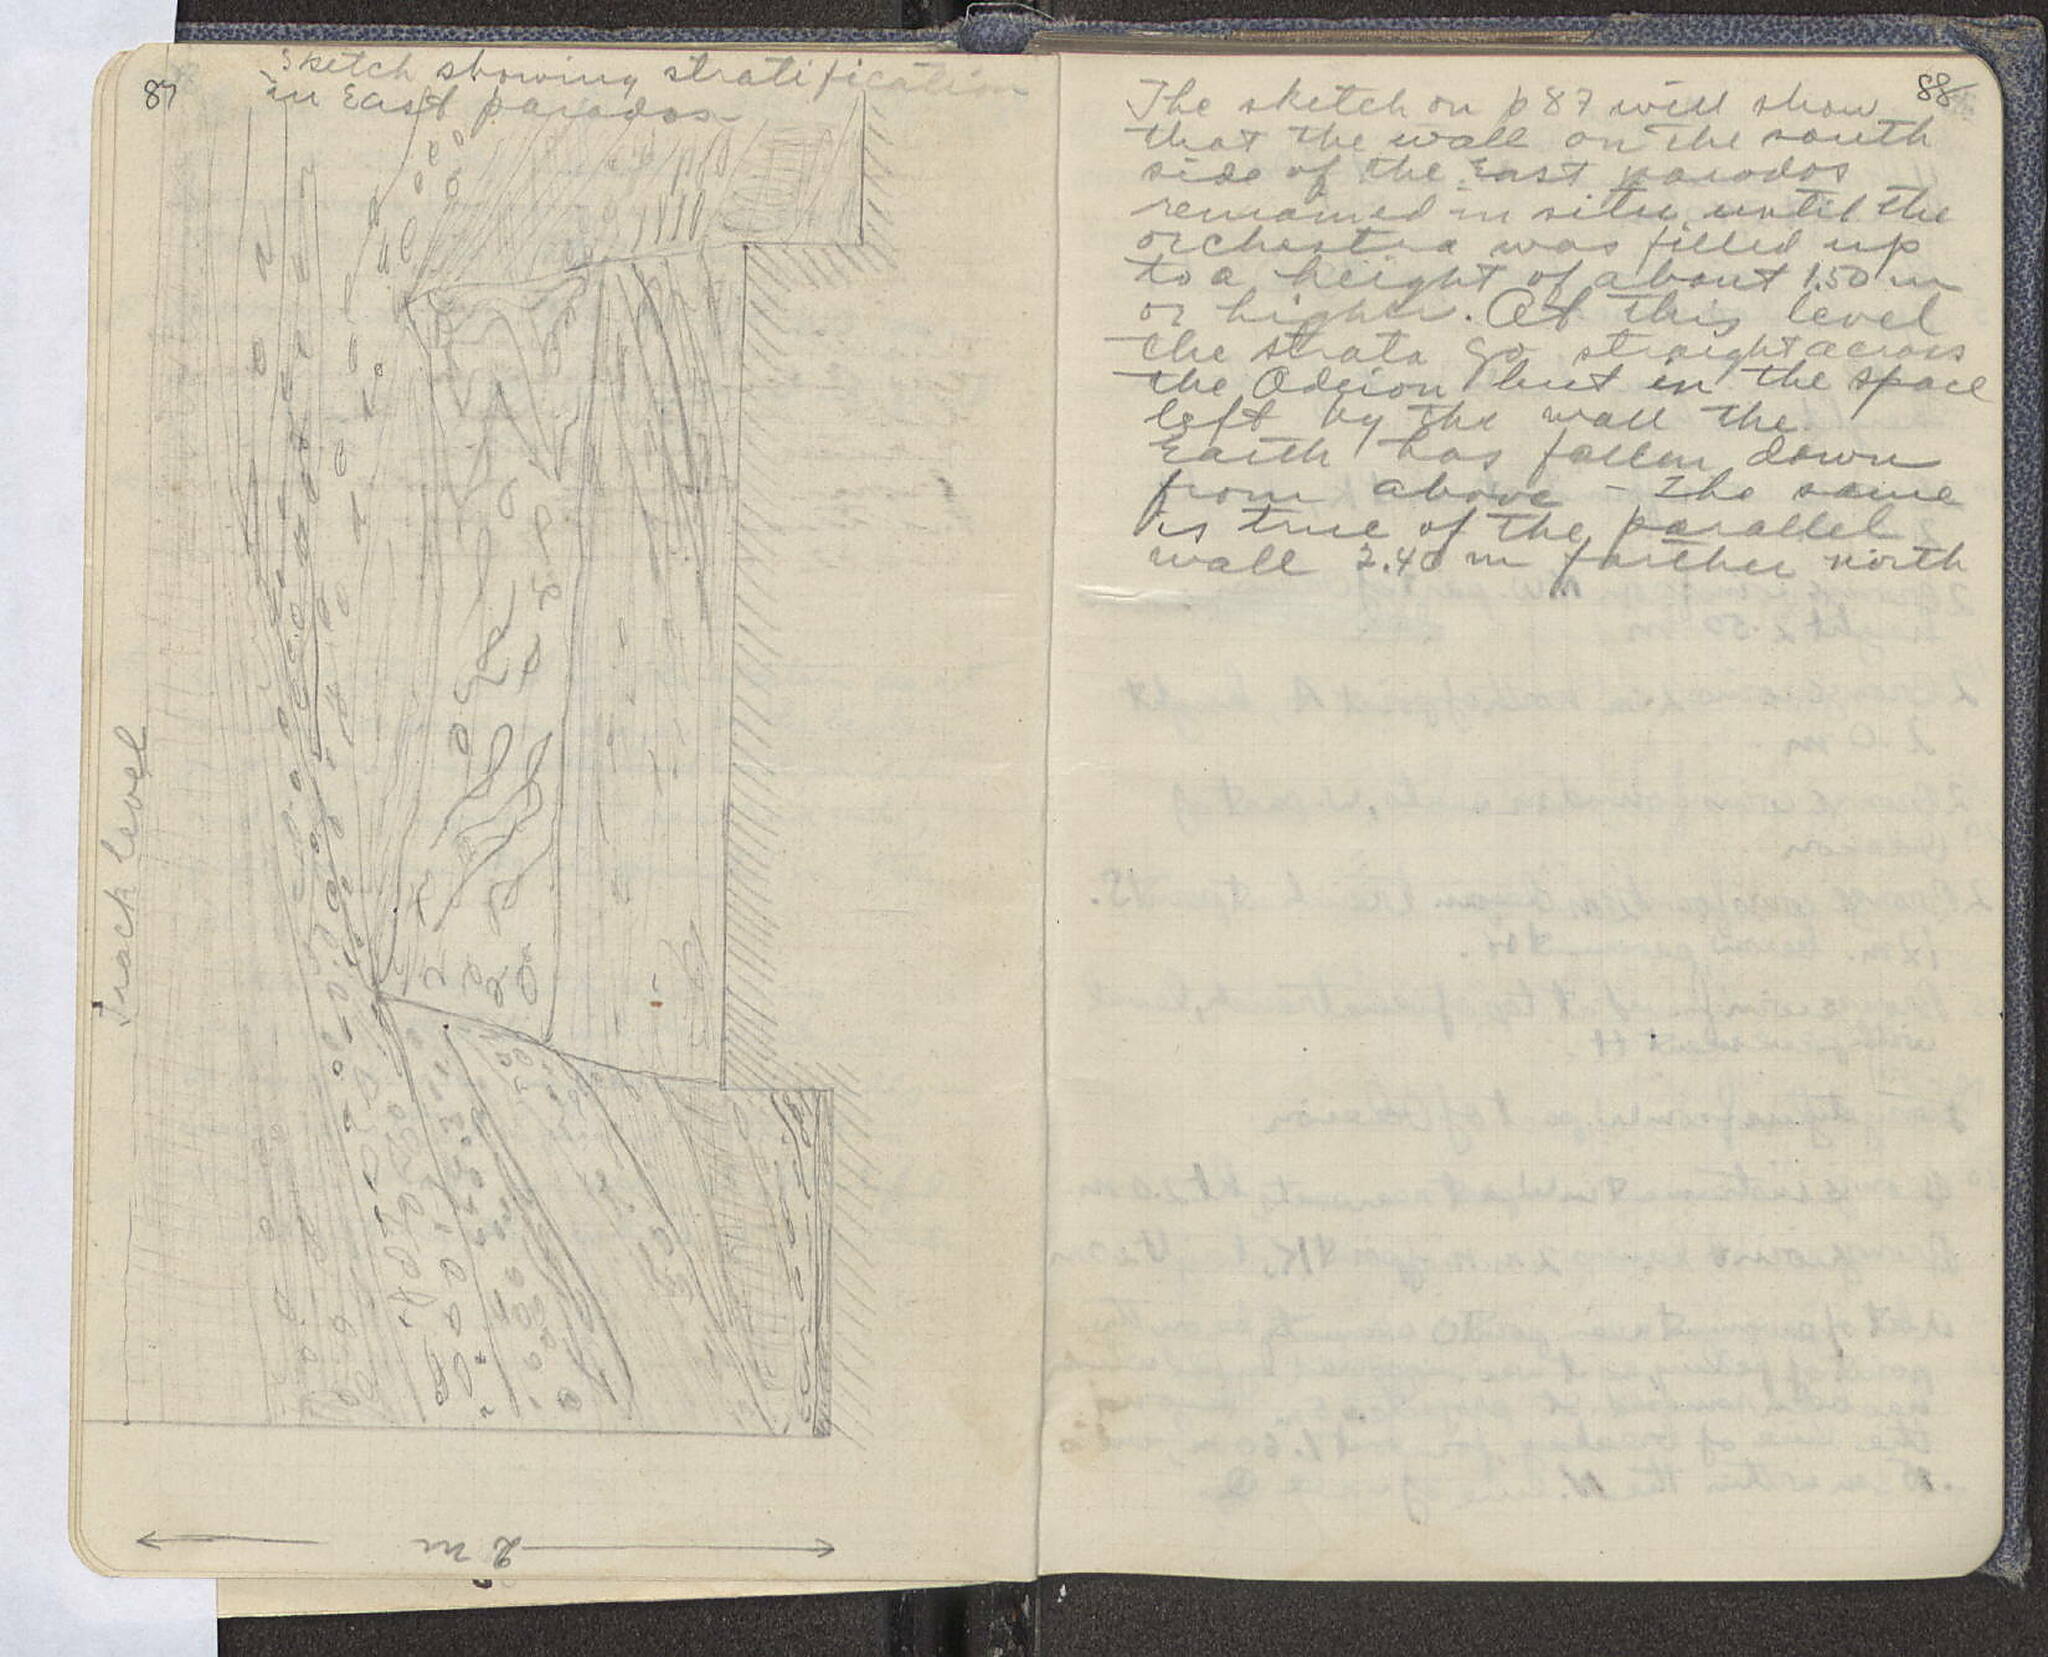 87
Sketch showing stratification
in East parados
Track level
2 m
88
The sketch on p 87 will show
that the wall on the south
side of the East parados
remained in situ until the
orchestra was filled up
to a height of about 1.50 m
or higher. At this level
the strata go straight across
the Odeion but in the space
left by the wall the
Earth has fallen down
from above – The same
is true of the parallel
wall 2.40 m farther north